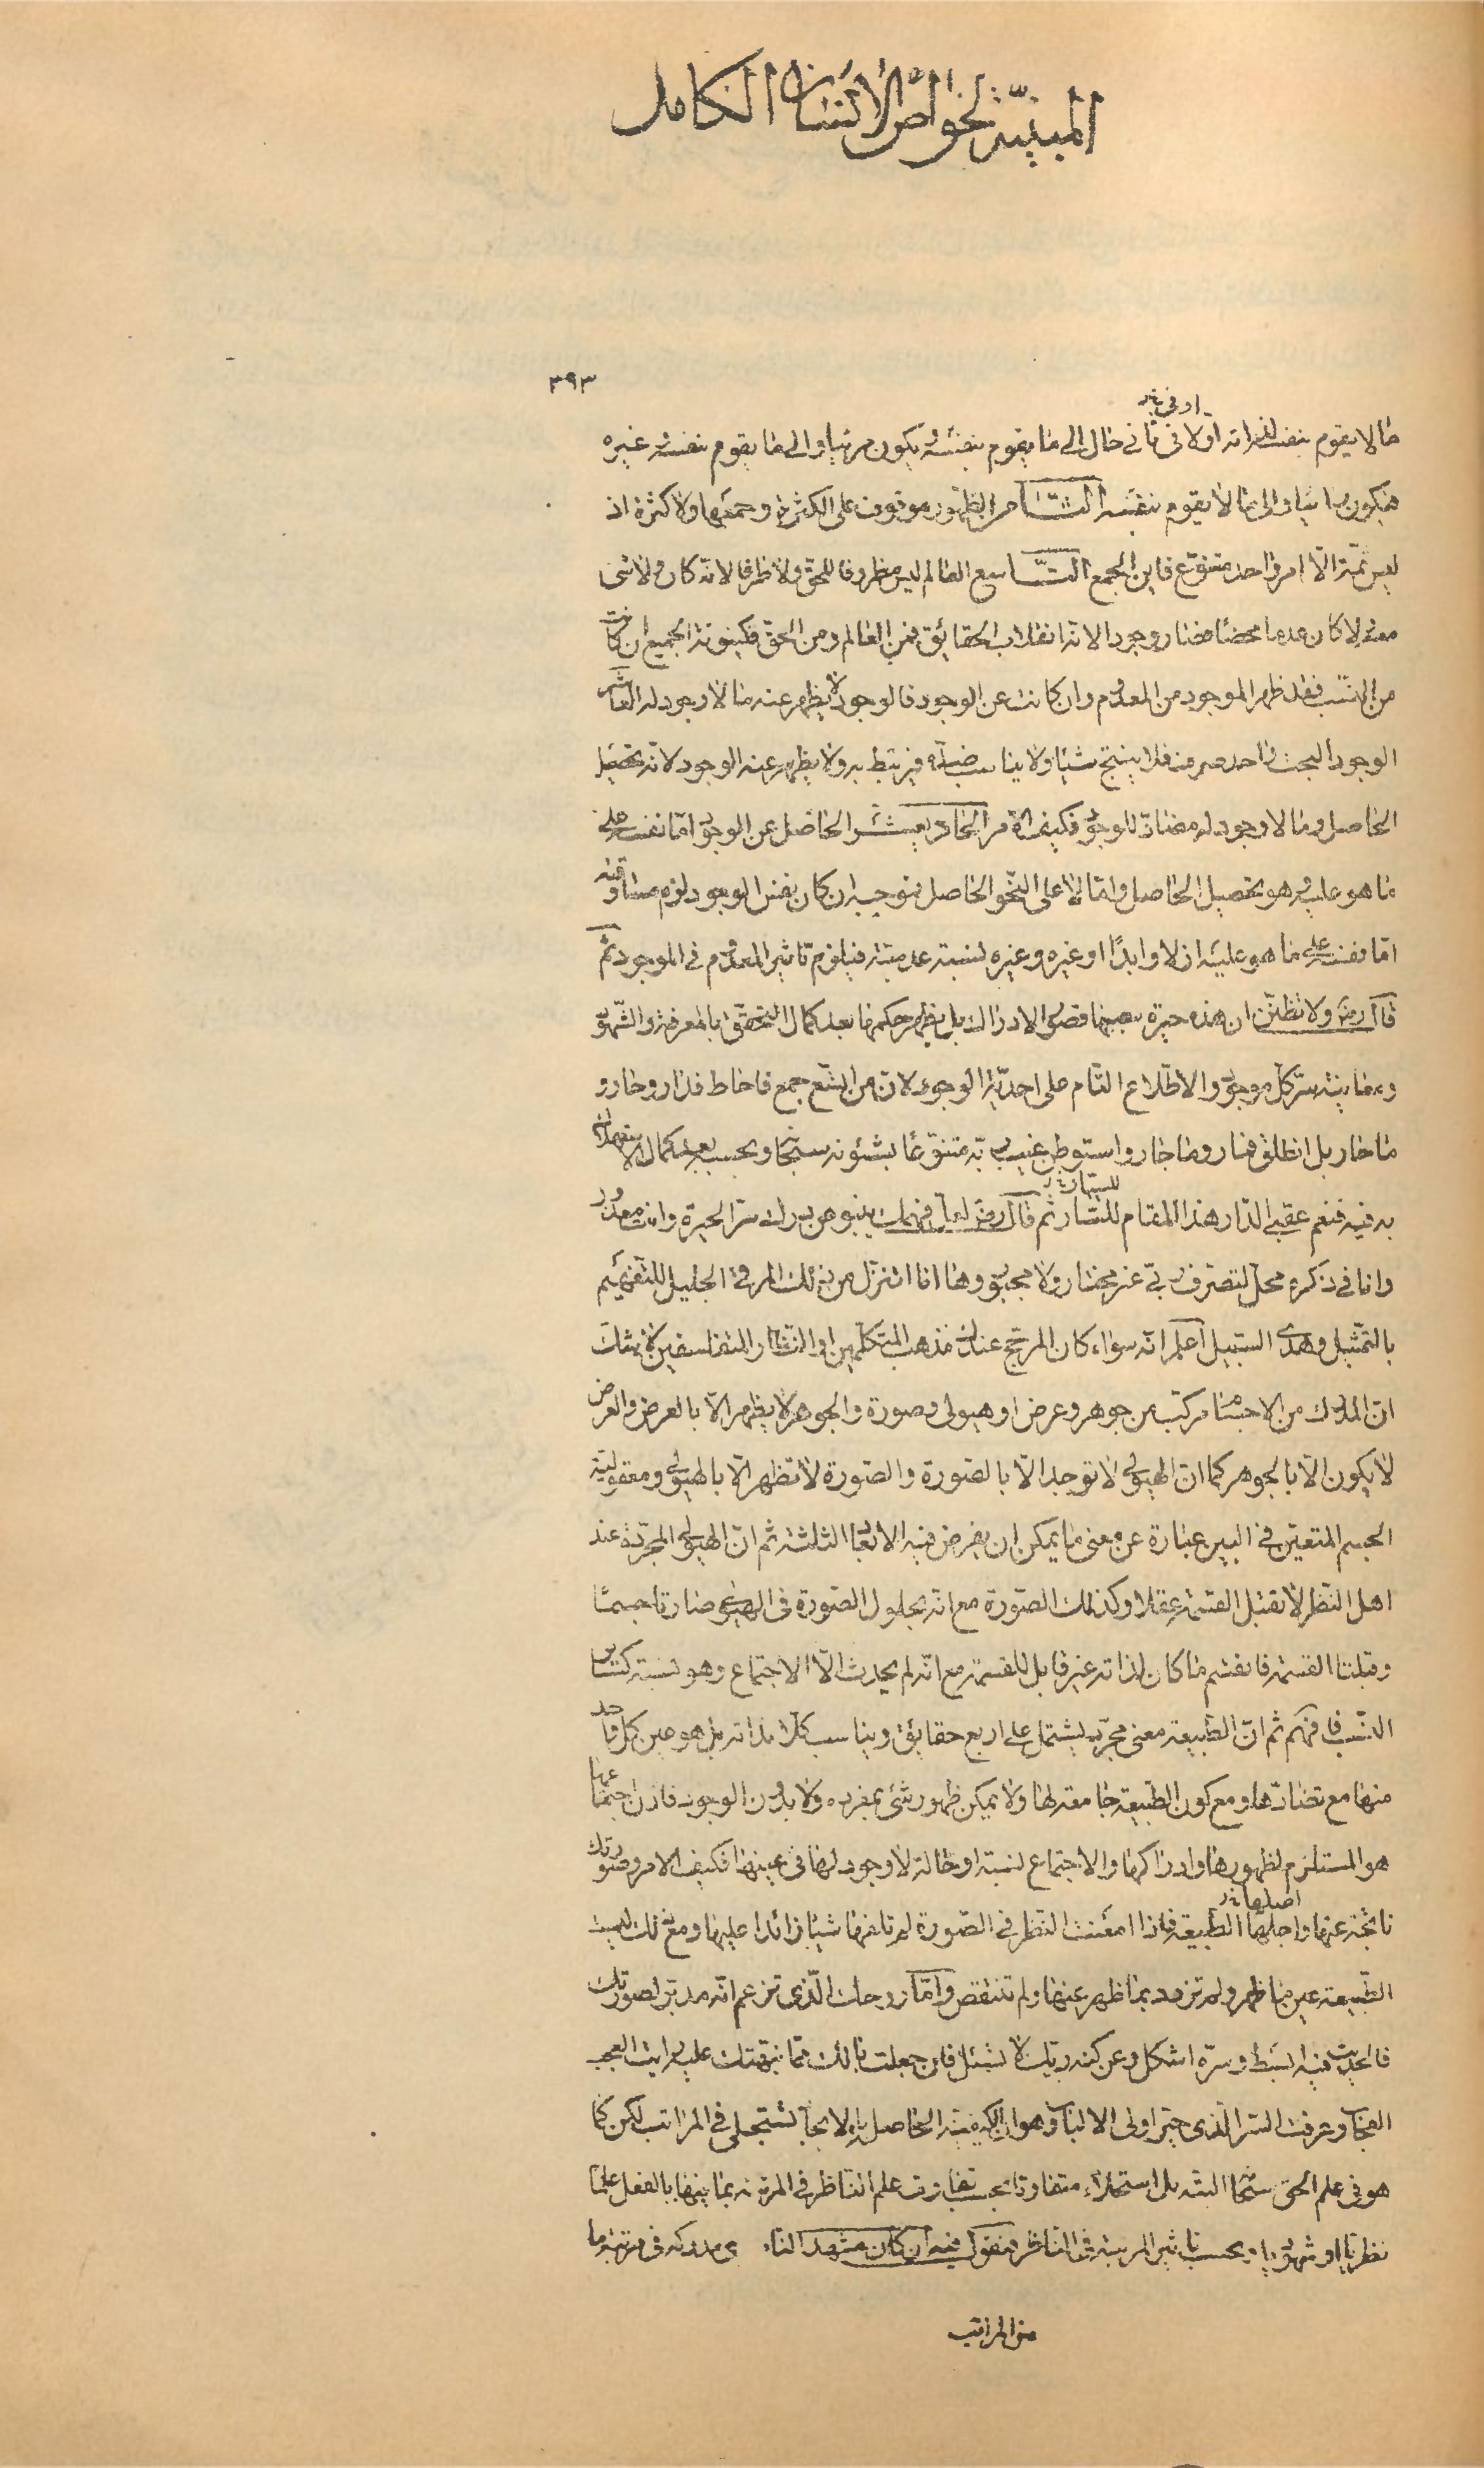 المبينة لخواص الأنسان الكامل
٣٩٣
او فى خ ر
ما لا يقوم بنفسه لذاته اولا فى ثانى حال الى ما يقوم بنفسه يكون مرتبا والى ما يقوم بنفسه غيره
فيكون مباينا والى ما لا يقوم بنفسه الثامن الظهور موقوف على الكثرة وجمعها ولا كثرة اذ
ليس ثمة الّا امر واحد متنوّع فاين الجمع التّاسع العالم ليس مظروفا للحق ولا ظرفا لانّه كان ولا شئ
معه ولا كان عدما محضا فصار وجودا لانه انقلاب الحقائق فمن العالم ومن الحقّ فكينونة الجميع ان كانت
من النّسب فقد ظهر الموجود من المعدوم وان كانت عن الوجود فالوجود لا يظهر عنه ما لا وجود له العاشر
الوجود البحت واحد صرف فلا ينتج شيئا ولا يناسب ضدّه فيرتبط به ولا يظهر عنه الوجود لانّه تحصيل
الحاصل وما لا وجود له مضادّ للوجود فكيف الامر الحادى عشر الحاصل عن الوجود امّا نفسه على
ما هو عليه وهو تحصيل الحاصل وامّا لا على النّحو الحاصل فموجبه ان كان نفس الوجود لزم مساوقته
امّا نفسه على ما هو عليه ازلا وابدًا او غيره وغيره لنسبة عدمية فيلزم تاثير المعدوم فى الموجود ثم
قال رمز ولا تظنّن ان هذه حيرة سببها قصور الادراك بل يظهر حكمها بعد كمال التحقّق بالمعرفة والشهود
ومعاينة سرّ كل موجود والاطّلاع التّام على احديّة الوجود لان من اتّسع جمع فاحاط فدار وحار و
ما حار بل انطلق فمار وما جار واستوطن غيب ربّه متنوّعا بشئونه سبحانه وبحسبه بعد كمال الاستهلاك
به فيه فنعم عقبى الدّار هذا المقام للسّار ثم قال رمز لعل فهمك ينبو عن درك سرّ الحيرة وانت معذور
للستار خ ر
وانا فى ذكره محل لتصرف ربّى غير مختار ولا مجبور وها انا اتنزل من ذلك المرقى الجليل للتفهيم
بالتمثيل وهدى السبيل اعلم انّه سواء كان المرجّح عندك مذهب المتكلّمين او النّظار المتفلسفين لا شك
انّ المدرك من الاجسام مركّب من جوهر وعرض او هيولى وصورة والجوهر لا يظهر الّا بالعرض والعرض
لا يكون الّا بالجوهر كما انّ الهيولى لا توجد الّا بالصّورة والصّورة لا تظهر الّا بالهيولى ومعقوليّة
الجسم المتعيّن فى البين عبارة عن معنى ما يمكن ان يفرض فيه الابعاد الثلثة ثم انّ الهيولى المجرّدة عند
اهل النّظر لا تقبل القسمة عقلا وكذلك الصّورة مع انّه بحلول الصّورة فى الهيولى صارتا جسمًا
وقبلتا القسمة فانقسم ما كان لذاته غير قابل للقسمة مع انّه لم يحدث الّا الاجتماع وهو نسبة كسائر
النّسب فافهم ثم انّ الطّبيعة معنى مجرّد يشتمل على اربع حقائق ويناسب كلّا بذاته بل هو عين كل واحد
منها مع تضادّها ومع كون الطّبيعة جامعة لها ولا يمكن ظهور شئ بمفرده ولا بدون الوجود فاذن اجتماعها
هو المستلزم لظهورها وادراكها والاجتماع لنسبة او حالة لا وجود لها فى عينها فكيف الامر وصورتك
اصلها خ ر
ناتجة عنها واجلها الطّبيعة فاذا امعنت النّظر فى الصّورة لم تلفها شيئا زائدا عليها ومع ذلك ليست
الطّبيعة عين ما ظهر ولم تزدد بما ظهر عنها ولم تنتقص وامّا روحك الّذى تزعم انّه مدبّر لصورتك
فالحديث فيه ابسط وسرّه اشكل وعن كنه ربّك لا تسئل فان جعلت بالك ممّا نبّهتك عليه رايت العجب
العجاب وعرفت السّر الّذى حيّر اولى الالباب وهو ان الكيفيّة الحاصلة بالايجاد تستجلى فى المراتب لكن كما
هو فى علم الحق سبحانه البتّه بل استجلاء متفاوتا بحسب تفاوت علم النّاظر فى المرتبة بما فيها بالفعل علما
نظريّا او شهوديّا وبحسب تاثير المرتبة فى النّاظر فنقول فيه ان كان مشهد مدركه فى مرتبة ما
من المراتب